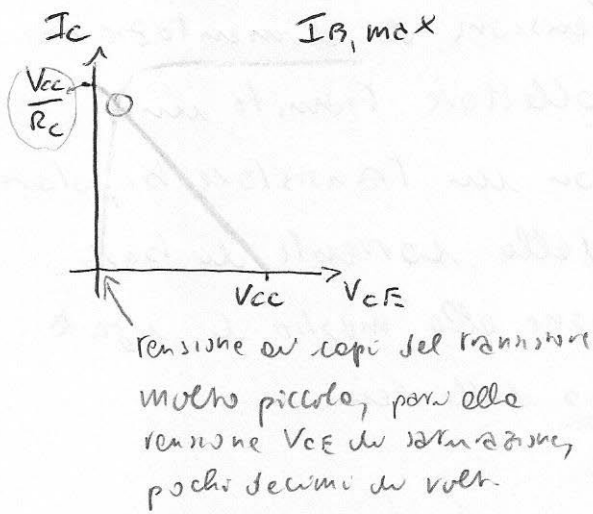 Ic
IB, max
Vcc
Rc
Vcc
VCE
tensione ai capi del transistore
molto piccola, pari alla
tensione VCE di saturazione,
pochi decimi di volt.